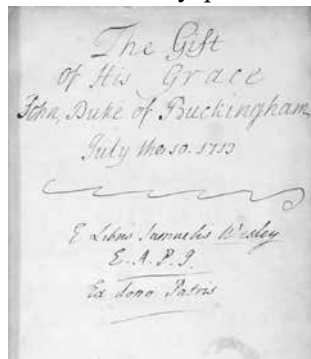 The Gift
of His Grace
John, Duke of Buckingham,
July the 10. 1713
E Libris Samuelis Wesley
E. A. P. J.
Ex dono Patris